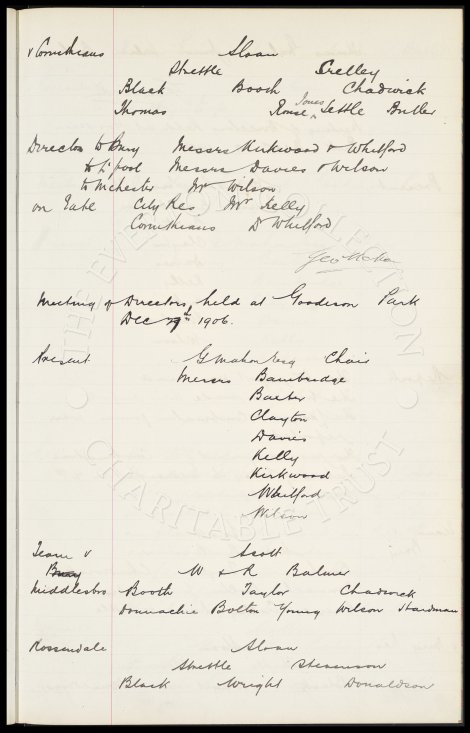 v Corinthians Sloan
Strettle Crelley
Black Booch Chadwick
Thomas Rouse Jones Settle Butler
Directors to Bury Messrs Kirkwood & Whitford
to L'pool Messrs Davies & Wilson
to M'chester Mr Wilson
on Gate City Res Mr Kelly
Corinthians Dr Whitford
Geo Mahon
Meeting of Directors, held at Goodison Park
Dec 29th 1906.
Present G Mahon Esq Chair
Messrs Bainbridge
Baxter
Clayton
Davies
Kelly
Kirkwood
Whitford
Wilson
Team v Scott
Bury W & R Balmer
Middlesbro Booth Taylor Chadwick
Donnachie Bolton Young Wilson Hardman
Rossendale Sloan
Strettle Stevenson
Black Wright Donaldson
THE EVERTON COLLECTION
CHARITABLE TRUST